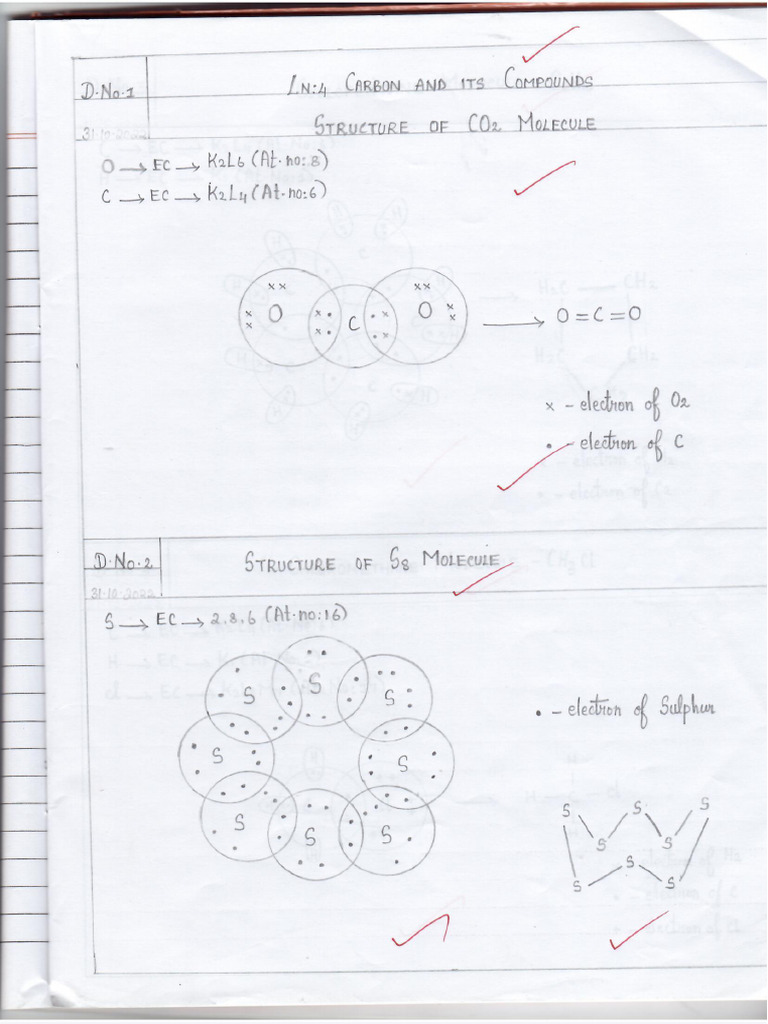 D.No.1
LN:4 CARBON AND ITS COMPOUNDS
31.10.2022
STRUCTURE OF CO2 MOLECULE
O → EC → K2L6 (At.no:8)
C → EC → K2L4 (At.no:6)
O C O → O=C=O
x - electron of O2
• - electron of C
D.No.2
STRUCTURE OF S8 MOLECULE
31.10.2022
S → EC → 2,8,6 (At.no:16)
S
S S
• - electron of Sulphur
S S
S S S
S S
S S S
S S
S S
S
S S